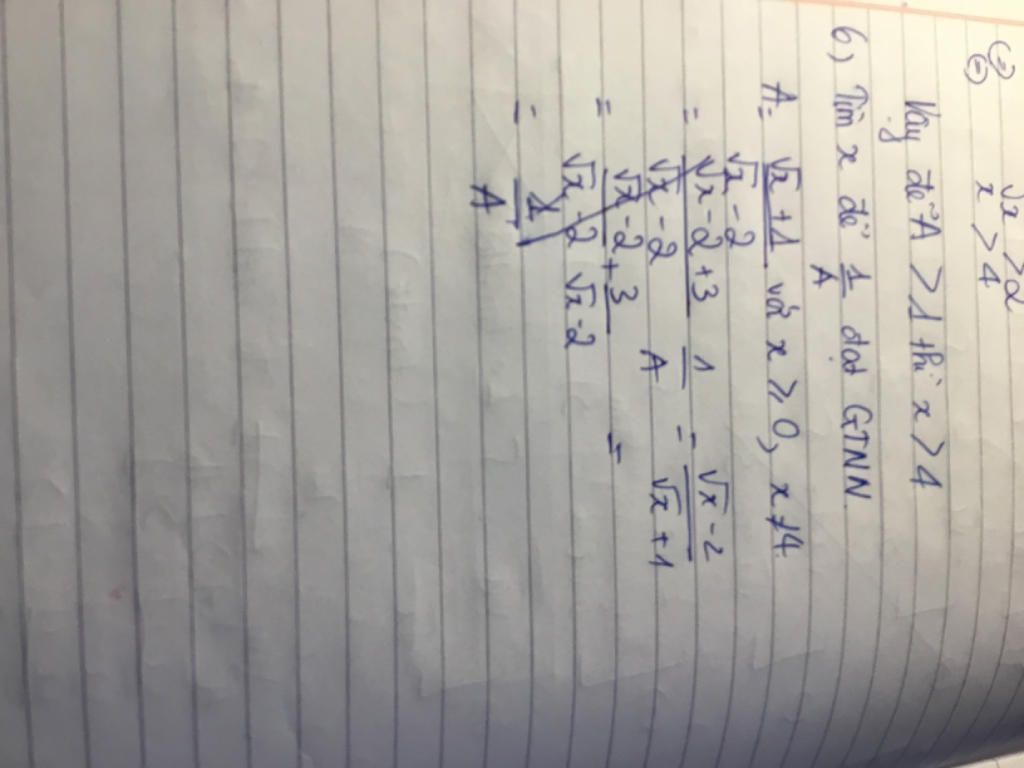 (=) √x > 2
(=) x > 4
Vậy để A > 1 thì x > 4
6) Tìm x để 1/A đạt GTNN
A = (√x + 1)/(√x - 2) và x ≥ 0, x ≠ 4
= (√x - 2 + 3)/(√x - 2) 1/A = (√x - 2)/(√x + 1)
= (√x - 2 + 3)/(√x - 2 √x - 2) =
= 1/A